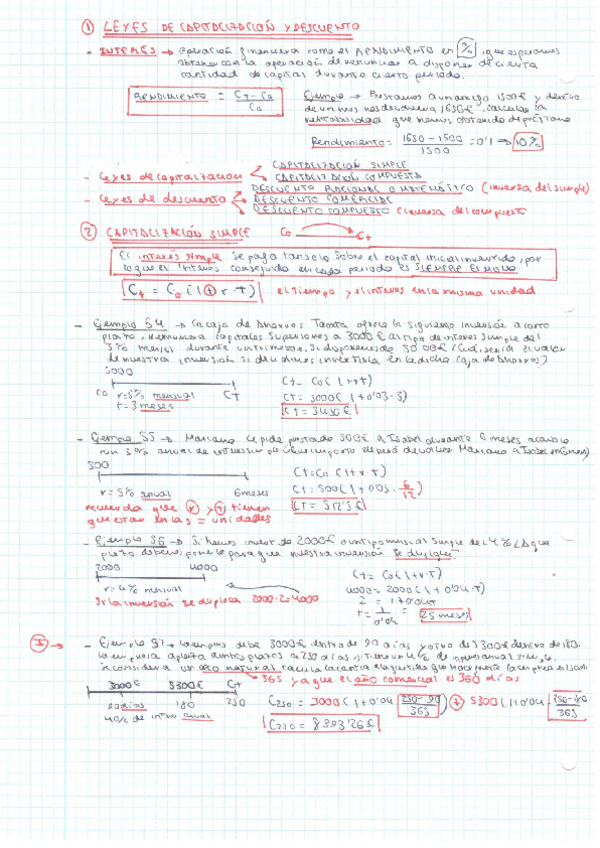 ① LEYES DE CAPITALIZACIÓN Y DESCUENTO
- INTERÉS → Operación financiera como el RENDIMIENTO en %, que esperamos
obtener con la operación de renunciar a disponer de cierta
cantidad de capital durante cierto periodo.
RENDIMIENTO = Ct - C0 / C0
Ejemplo → Prestamos a un amigo 1500€ y dentro
de un mes nos devuelve 1650€. calcular la
rentabilidad que hemos obtenido del préstamo
Rendimiento = 1650 - 1500 / 1500 = 0'1 ⇒ 10%
- Leyes de capitalización
CAPITALIZACIÓN SIMPLE
CAPITALIZACIÓN COMPUESTA
- Leyes de descuento
DESCUENTO RACIONAL O MATEMÁTICO (inversa del simple)
DESCUENTO COMERCIAL
DESCUENTO COMPUESTO (inversa del compuesto
② CAPITALIZACIÓN SIMPLE C0 Ct
El interés simple se paga tan solo sobre el capital inicial invertido, por
lo que el interés conseguido en cada periodo es SIEMPRE EL MISMO
Ct = C0 (1 + r · T) el tiempo y el interés en la misma unidad
- Ejemplo 54 → La caja de Ahorros Tamta ofrece la siguiente inversión a corto
plazo, remunera capitales superiores a 3000€ al tipo de interés simple del
3% mensual durante Si disponemos de 3000€ ¿Cuál sería el valor
de nuestra inversión si decidimos invertirla en la dicha Caja de Ahorros?
3000
C0 r=5% mensual Ct
t = 3 meses
Ct = C0 (1+r·t)
Ct = 3000 (1+0'03·5)
Ct = 3450€
- Ejemplo 55 → Mariano le pide prestado 500€ a Isabel durante 6 meses
un 5% anual de interés simple ¿Qué importe deberá devolver Mariano a Isabel en 6 meses?
500
r = 5% anual 6 meses
recuerda que r y t tienen
que estar en las = unidades
Ct = C0 (1+r·T)
Ct = 500 (1+0'05 · 6/12)
Ct = 512'5€
- Ejemplo 56 → Si hemos invertido 2000€ a un tipo mensual simple del 4% ¿A que
plazo debemos ponerlo para que nuestra inversión se duplique?
2000 4000
r = 4% mensual
Si la inversión se duplica 2000·2 = 4000
Ct = C0 (1+r·T)
4000 = 2000 (1+0'04T)
2 = 1+0'04T
t = 1/0'04 = 25 meses
I → - Ejemplo 57 → La empresa debe 3000€ dentro de 90 días y otro de 5300€ dentro de 180.
La empresa aplaza ambos plazos a 250 días y tienen un 4% de interés anual simple.
Se considera un año natural
365 ya que el año comercial es 360 días
3000€ 5300€ Ct
90 días 180 250
4% de interés anual
C250 = 3000 (1+0'04 250-90/365) + 5300 (1+0'04 250-180/365
C250 = 8393'26€